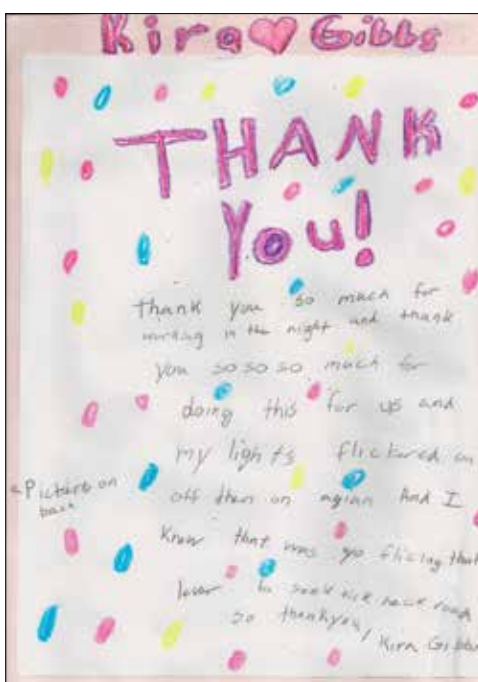 Kira Gibbs
THANK
You!
thank you so much for
working in the night and thank
you so so so much for
doing this for us and
my lights flickered on
off then on again And I
Knew that was yo flicing that
lever to
so thankyou,
Kira Gibbs
Picture on
back